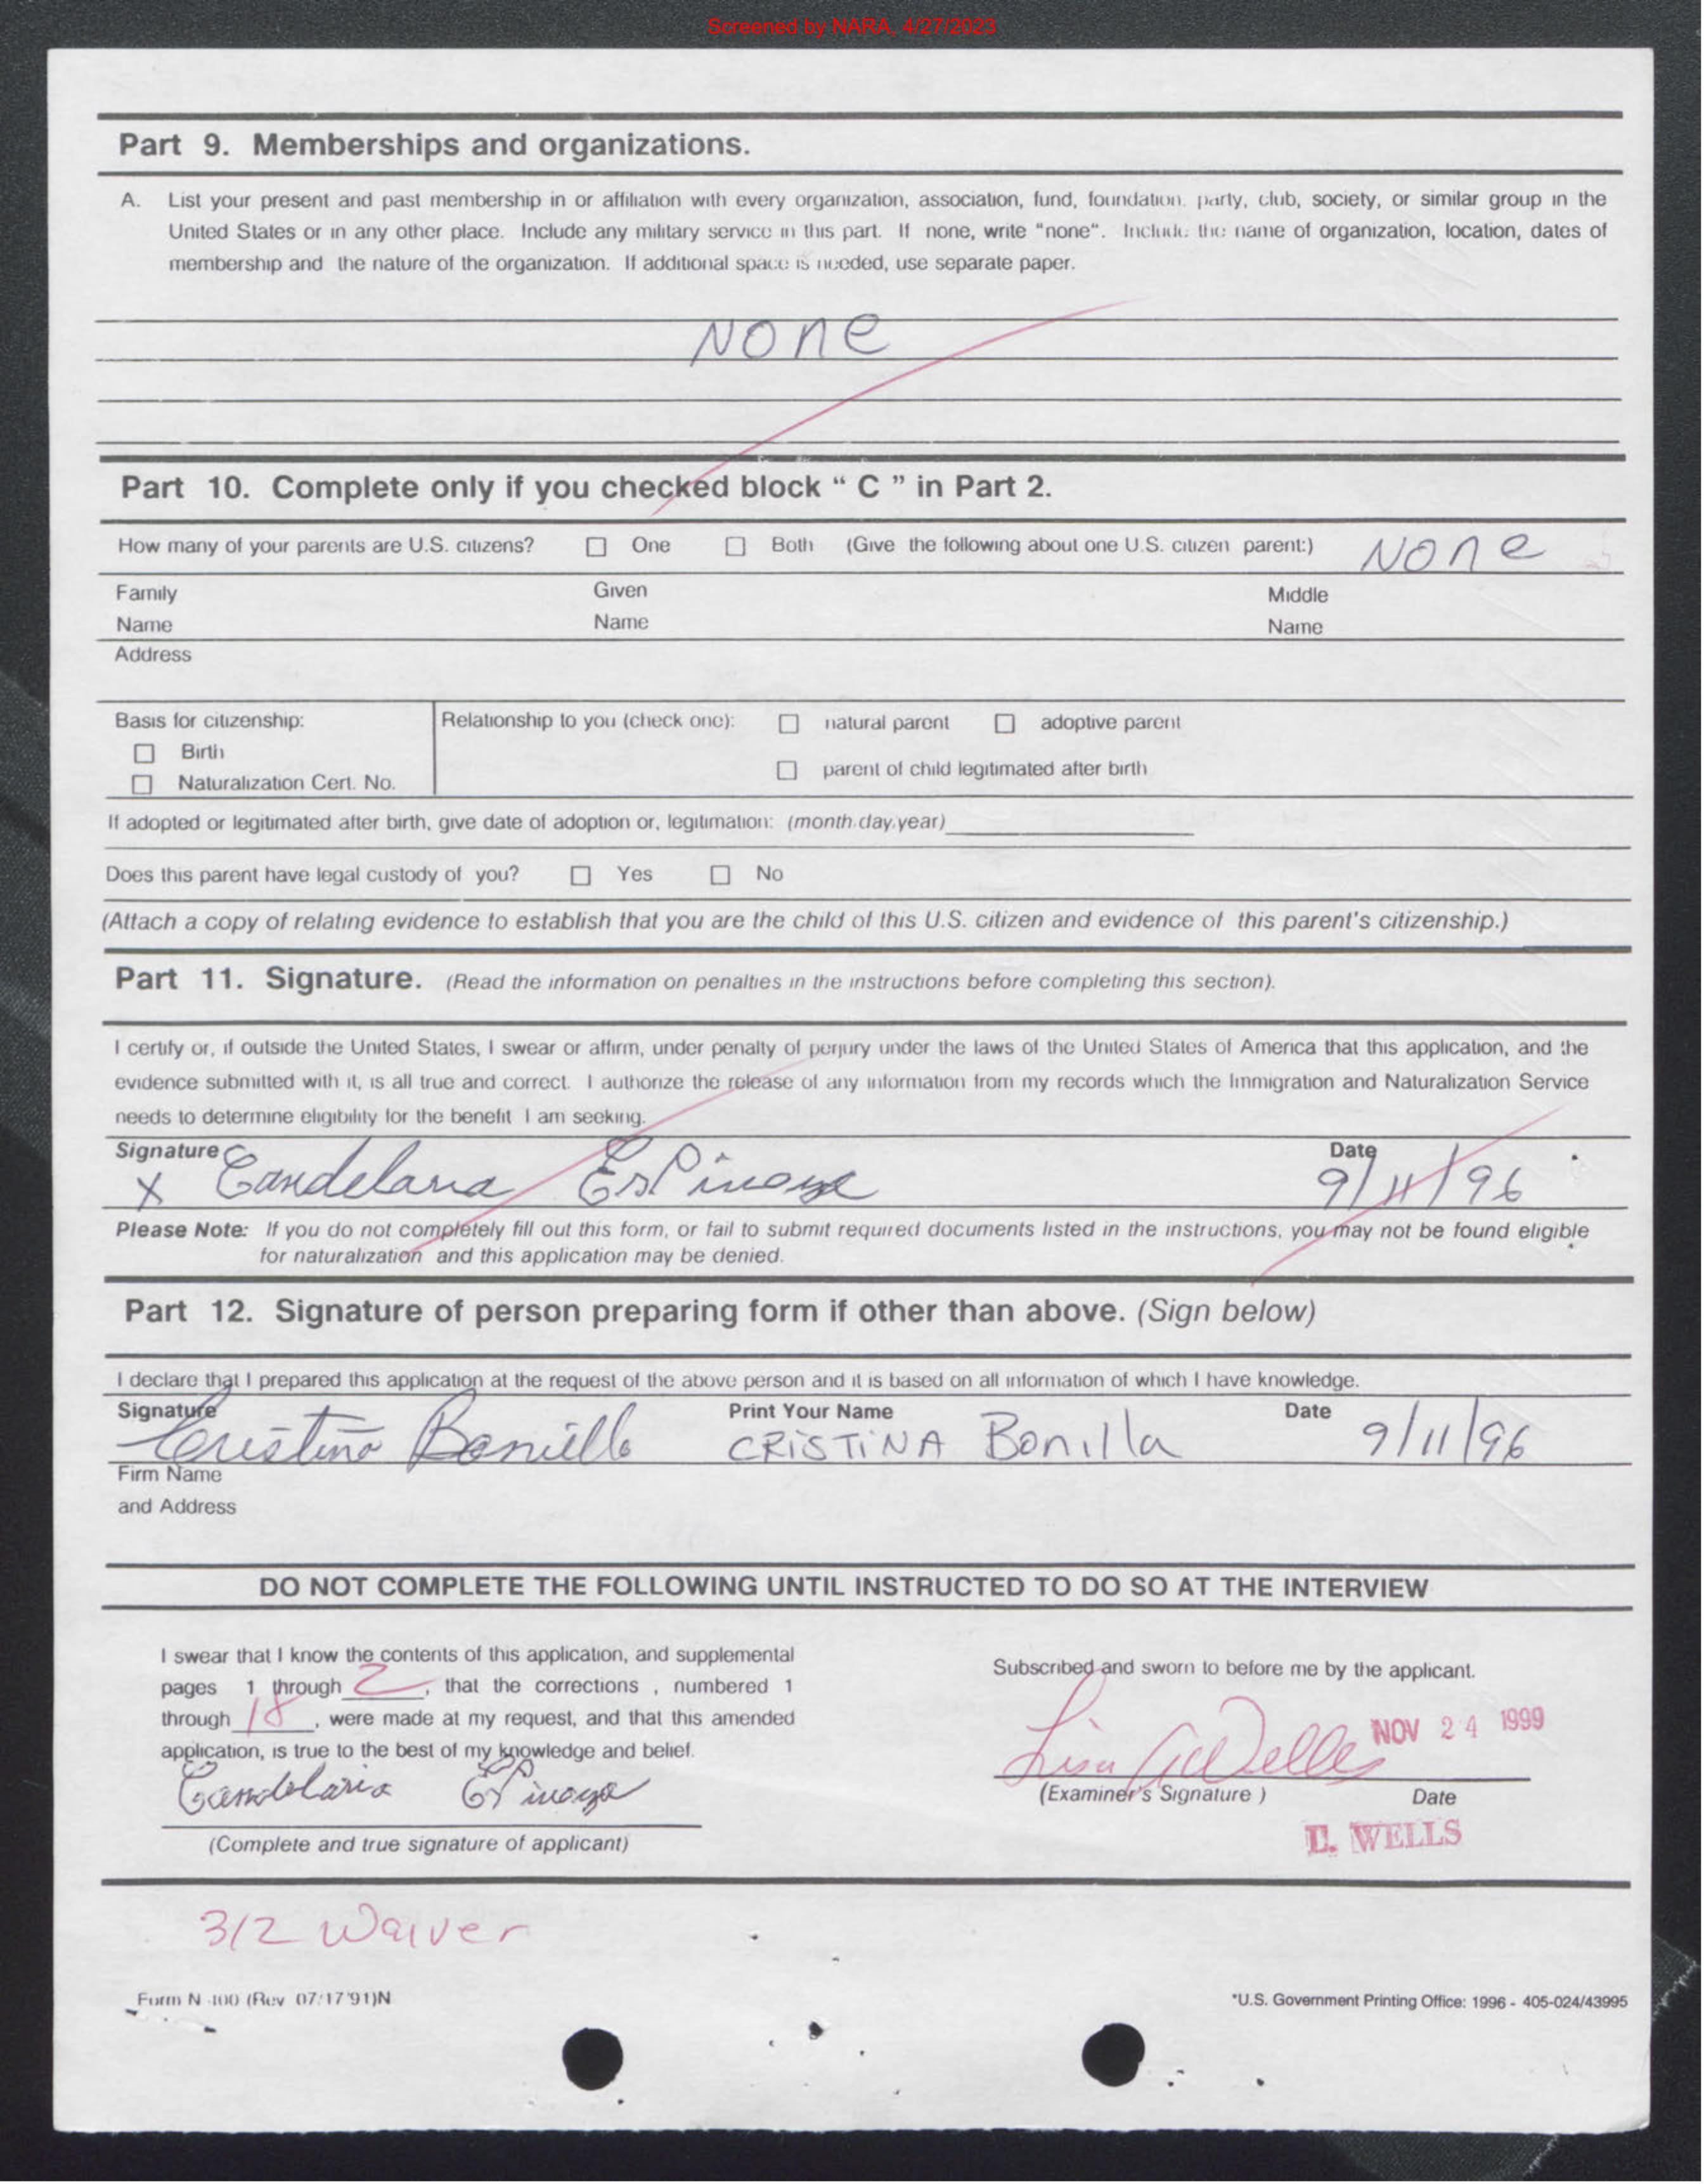 Screened by NARA, 4/27/2023
Part 9. Memberships and organizations.
A. List your present and past membership in or affiliation with every organization, association, fund, foundation, party, club, society, or similar group in the
United States or in any other place. Include any military service in this part. If none, write "none". Include the name of organization, location, dates of
membership and the nature of the organization. If additional space is needed, use separate paper.
None
Part 10. Complete only if you checked block " C " in Part 2.
How many of your parents are U.S. citizens? One Both (Give the following about one U.S. citizen parent:) None
Family Given Middle
Name Name Name
Address
Basis for citizenship: Relationship to you (check one): natural parent adoptive parent
Birth
parent of child legitimated after birth
Naturalization Cert. No.
If adopted or legitimated after birth, give date of adoption or, legitimation: (month,day,year)
Does this parent have legal custody of you? Yes No
(Attach a copy of relating evidence to establish that you are the child of this U.S. citizen and evidence of this parent's citizenship.)
Part 11. Signature. (Read the information on penalties in the instructions before completing this section).
I certify or, if outside the United States, I swear or affirm, under penalty of perjury under the laws of the United States of America that this application, and the
evidence submitted with it, is all true and correct. I authorize the release of any information from my records which the Immigration and Naturalization Service
needs to determine eligibility for the benefit I am seeking.
Signature Date
X Candelaria Espinoza 9/11/96
Please Note: If you do not completely fill out this form, or fail to submit required documents listed in the instructions, you may not be found eligible
for naturalization and this application may be denied.
Part 12. Signature of person preparing form if other than above. (Sign below)
I declare that I prepared this application at the request of the above person and it is based on all information of which I have knowledge.
Signature Print Your Name Date
Cristina Bonilla CRISTINA Bonilla 9/11/96
Firm Name
and Address
DO NOT COMPLETE THE FOLLOWING UNTIL INSTRUCTED TO DO SO AT THE INTERVIEW
I swear that I know the contents of this application, and supplemental
pages 1 through 2, that the corrections , numbered 1
through 18, were made at my request, and that this amended
application, is true to the best of my knowledge and belief.
Candelaria Espinoza
(Complete and true signature of applicant)
Subscribed and sworn to before me by the applicant.
Lisa Wells NOV 24 1999
(Examiner's Signature ) Date
L. WELLS
312 Waiver
Form N-400 (Rev 07/17/91)N
*U.S. Government Printing Office: 1996 - 405-024/43995